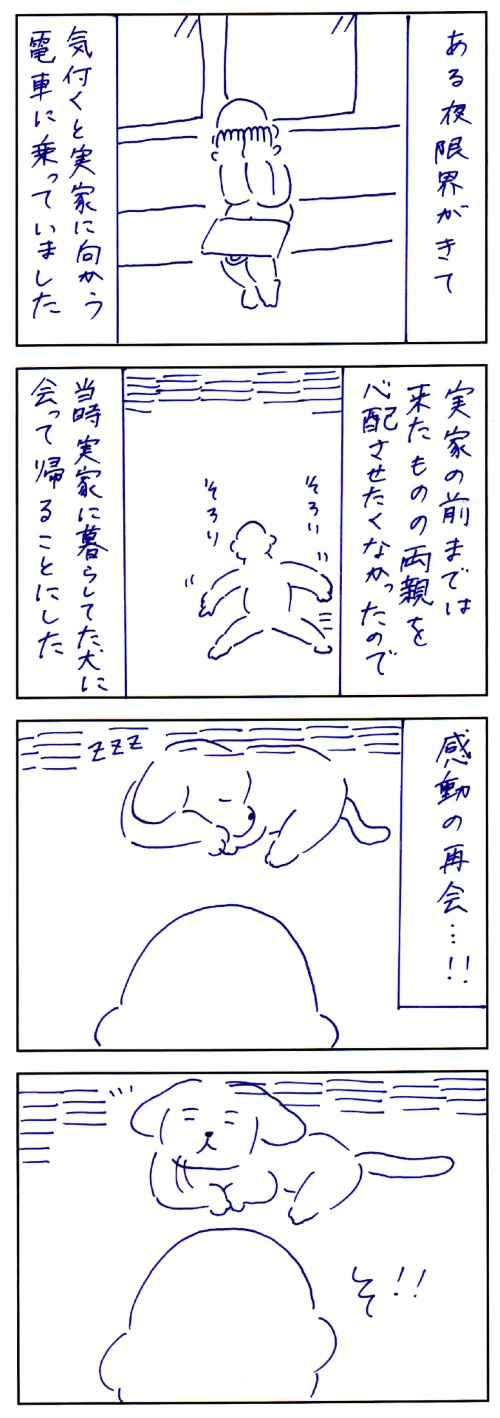 ある夜限界がきて
気付くと実家に向かう
電車に乗っていました
実家の前までは
来たものの両親を
心配させたくなかったので
そろり
そろり
当時実家に暮らしてた犬に
会って帰ることにした
感動の再会…!!
ZZZ
そ!!